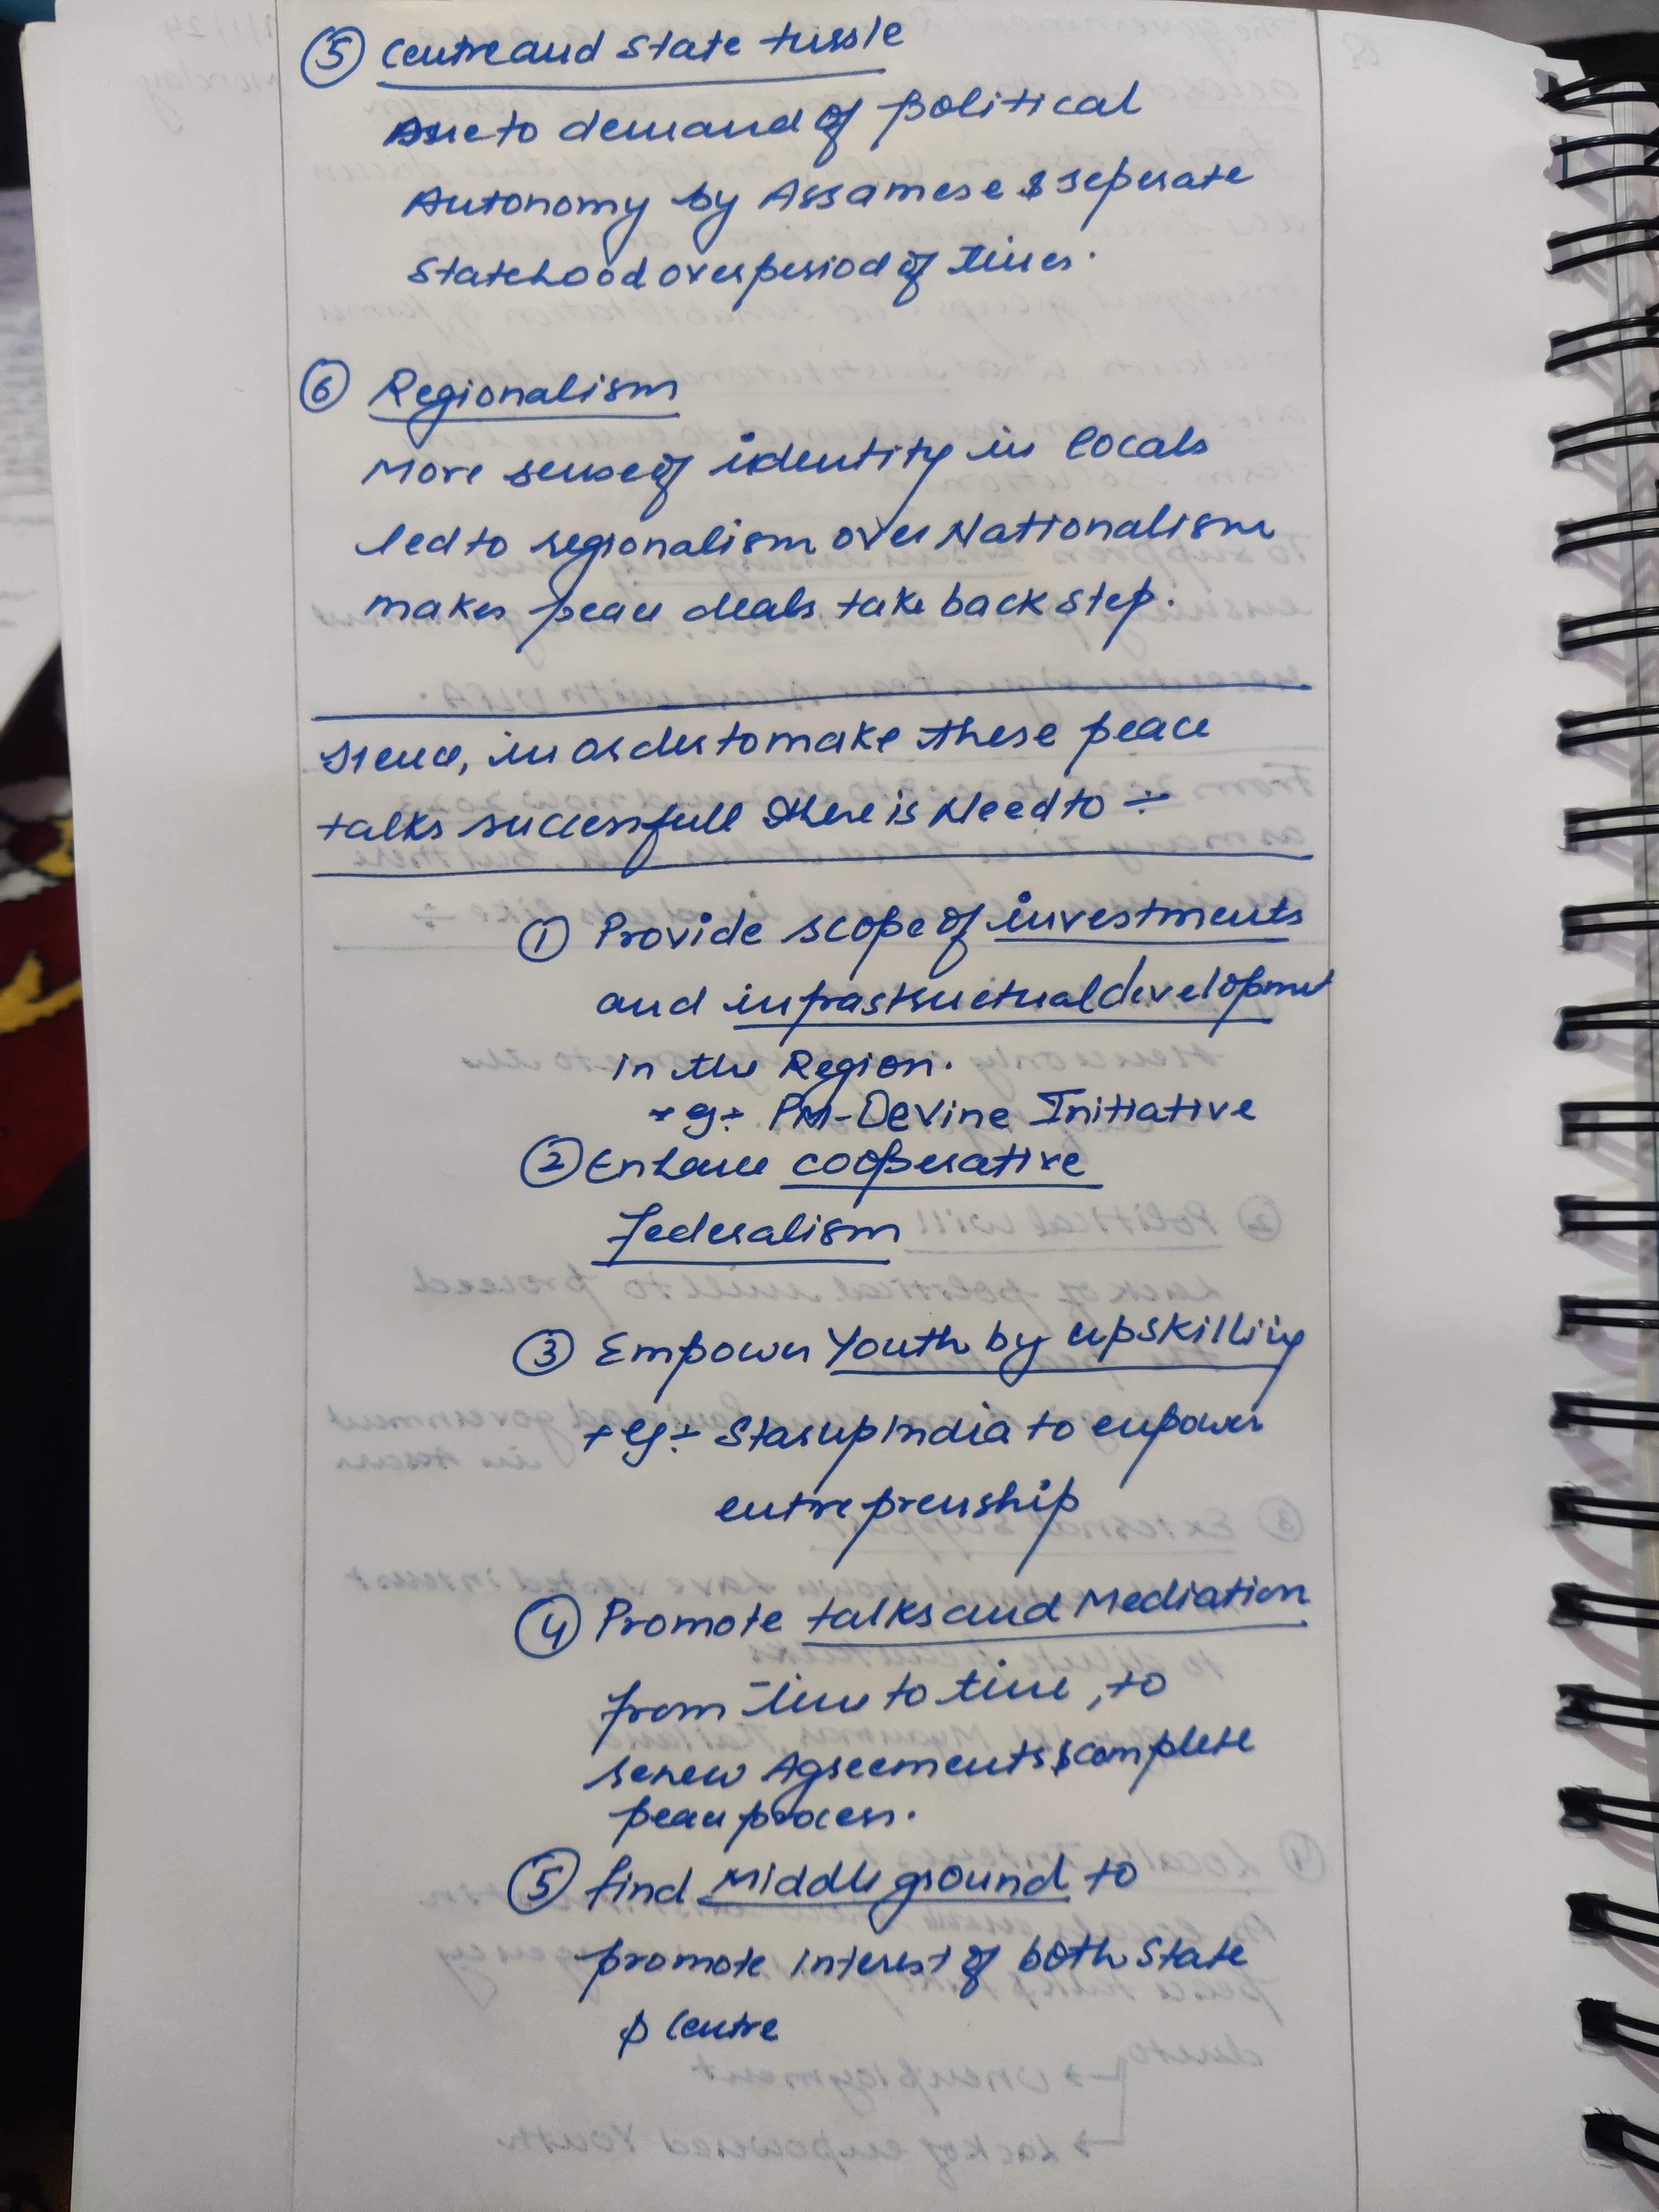 ⑤ Centre and State tussle
Due to demand of political
Autonomy by Assamese & seperate
Statehood over period of times.
⑥ Regionalism
More sense of identity in locals
led to regionalism over Nationalism
makes peace deals take back step.
Hence, in order to make these peace
talks successfull there is Need to ÷
① Provide scope of investments
and infrastructural development
in the Region.
→ eg ÷ PM-DeVine Initiative
② Enhance cooperative
federalism
③ Empower Youth by upskilling
→ eg ÷ Starup India to empower
entreprenship
④ Promote talks and Mediation
from time to time, to
renew Agreements & complete
peace process.
⑤ find Middle ground to
promote interest of both State
& Centre